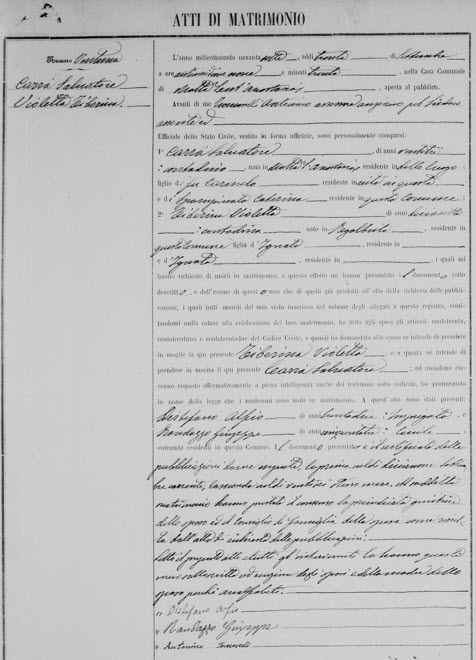 ATTI DI MATRIMONIO
Numero Ventuno
Carrà Salvatore
Violetta Tiberina
L'anno milleottocento novanta sette, addì trenta di Settembre
a ore antimeridiane nove e minuti trenta, nella Casa Comunale
di Motta Sant'Anastasia aperta al pubblico.
Avanti di me
assente ed
Uffiziale dello Stato Civile, vestito in forma ufficiale, sono personalmente comparsi:
1° Carrà Salvatore, di anni
contadino, nato in Motta S. Anastasia residente in detto luogo
figlio di fu Carmelo, residente in vita in questa
e di Spampinato Caterina residente in questo Comune;
2° Tiberina Violetta di anni
contadina nata in Regalbuto residente in
questo Comune figlia d'Ignoti, residente in
e d'Ignota, residente in, i quali mi
hanno richiesto di unirli in matrimonio; a questo effetto mi hanno presentato il documento sotto
descritto, e dall'esame di questo non che di quelli già prodotti all'atto della richiesta delle pubblica-
zioni, i quali tutti muniti del mio visto inserisco nel volume degli allegati a questo registro, risul-
tandomi nulla ostare alla celebrazione del loro matrimonio, ho letto agli sposi gli articoli centotrenta,
centotrentuno e centotrentadue del Codice Civile, e quindi ho domandato allo sposo se intende di prendere
in moglie la qui presente Tiberina Violetta e a questa se intende di
prendere in marito il qui presente Carrà Salvatore; ed avendomi cia-
scuno risposto affermativamente a piena intelligenza anche dei testimoni sotto indicati, ho pronunziato
in nome della legge che i medesimi sono uniti in matrimonio. A quest'atto sono stati presenti:
Distefano Alfio di anni impiegato e
Randazzo Giuseppe di anni civile
entrambi residenti in questo Comune. Il documento presentato è il certificato delle
pubblicazioni
matrimonio hanno prestato il consenso
dello sposo ed il Consiglio di famiglia della sposa come risul-
ta dall'atto di richiesta delle pubblicazioni.
Letto il presente atto a tutti gl'intervenuti lo hanno questi
meco sottoscritto ad eccezione degli sposi e della madre dello
sposo perché analfabeti.
" Distefano Alfio
" Randazzo Giuseppe
" Antonino